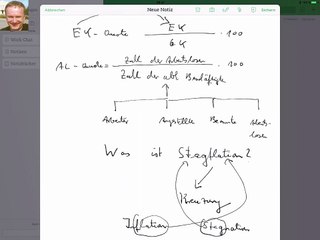 Abbrechen Neue Notiz
EK
EK-Quote = ——— · 100
GK
AL-Quote = Zahl der Arbeitslosen · 100
Zahl der abh. Beschäftigte
Arbeiter Angestellte Beamte Arbeitslose
Was ist Stagflation?
Kreuzung
Inflation Stagnation